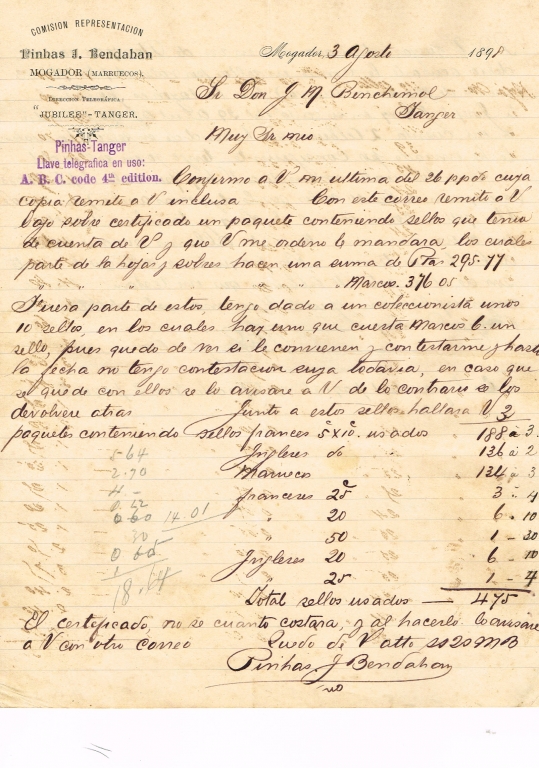 COMISION REPRESENTACION
Pinhas J. Bendahan
MOGADOR (MARRUECOS).
DIRECCION TELEGRÁFICA:
"JUBILEE"-TANGER.
Pinhas-Tanger
Llave telegrafica en uso:
A. B. C. code 4th edition.
Mogador, 3 Agosto 1898
Sr Don J M Binchimol
Tanger
Muy Sr mio
Confirmo a V mi ultima del 26 ppdo cuya
copia remito a V inclusa Con este correo remito a V
bajo sobre certificado un paquete conteniendo sellos que tenia
de cuenta de V y que V me ordeno le mandara, los cuales
parte de la hojas y sobres hacen una suma de Ptas 295.77
" " " " " Marcos. 376 05
Fuera parte de estos, tengo dado a un coleccionista unos
10 sellos, en los cuales hay uno que cuesta Marcos 6. un
sello, pues quedo de ver si le convienen y contestarme y hasta
la fecha no tengo contestacion suya todavia, en caso que
se quede con ellos se lo avisare a V de lo contrario se los
devolvere atras Junto a estos sellos hallara V 3
paquetes conteniendo sellos frances 5c x 10c usados 188 a 3.
Ingleses do 136 a 2
Marruecos 134 a 3
franceses 25c 3 . 4
" 20 6 . 10
" 50 1 - 30
Ingleses 20 6 - 10
" 25 1 - 4
Total sellos usados — 475
5.64
2.70
4 -
0.60 14.01
30
0 60
1
18.64
El certificado, no se cuanto costara, y al hacerlo lo avisare
a V con otro correo Quedo de V atto
Pinhas J Bendahan